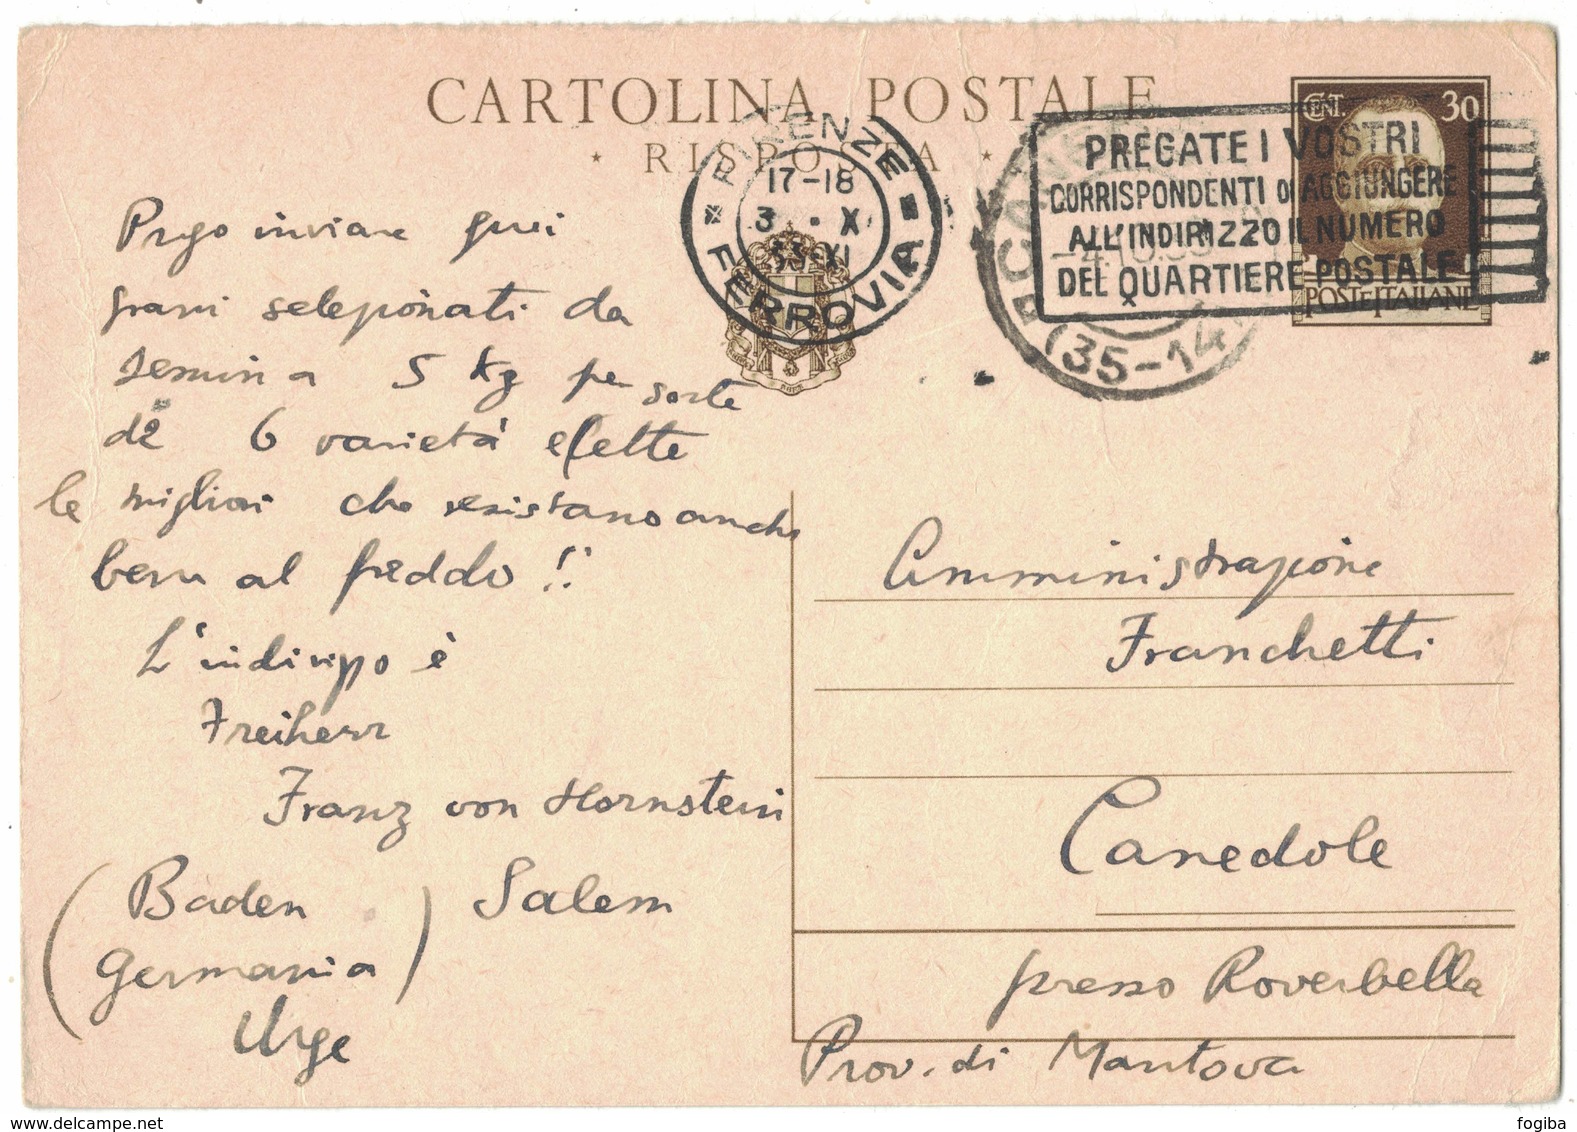 CARTOLINA POSTALE
RISPOSTA
CENT. 30
POSTE ITALIANE
FIRENZE
17-18
3 · X
33·XI
FERROVIA
PREGATE I VOSTRI
CORRISPONDENTI DI AGGIUNGERE
ALL'INDIRIZZO IL NUMERO
DEL QUARTIERE POSTALE
(35-14)
Prego inviare quei
grani selezionati da
semina 5 kg per sorte
di 6 varietà elette
le migliori che resistano anche
bene al freddo !!
L'indirizzo è
Freiherr
Franz von Hornstein
(Baden Salem
Germania)
Urge
Amministrazione
Franchetti
Canedole
presso Roverbella
Prov. di Mantova
fogiba
www.delcampe.net